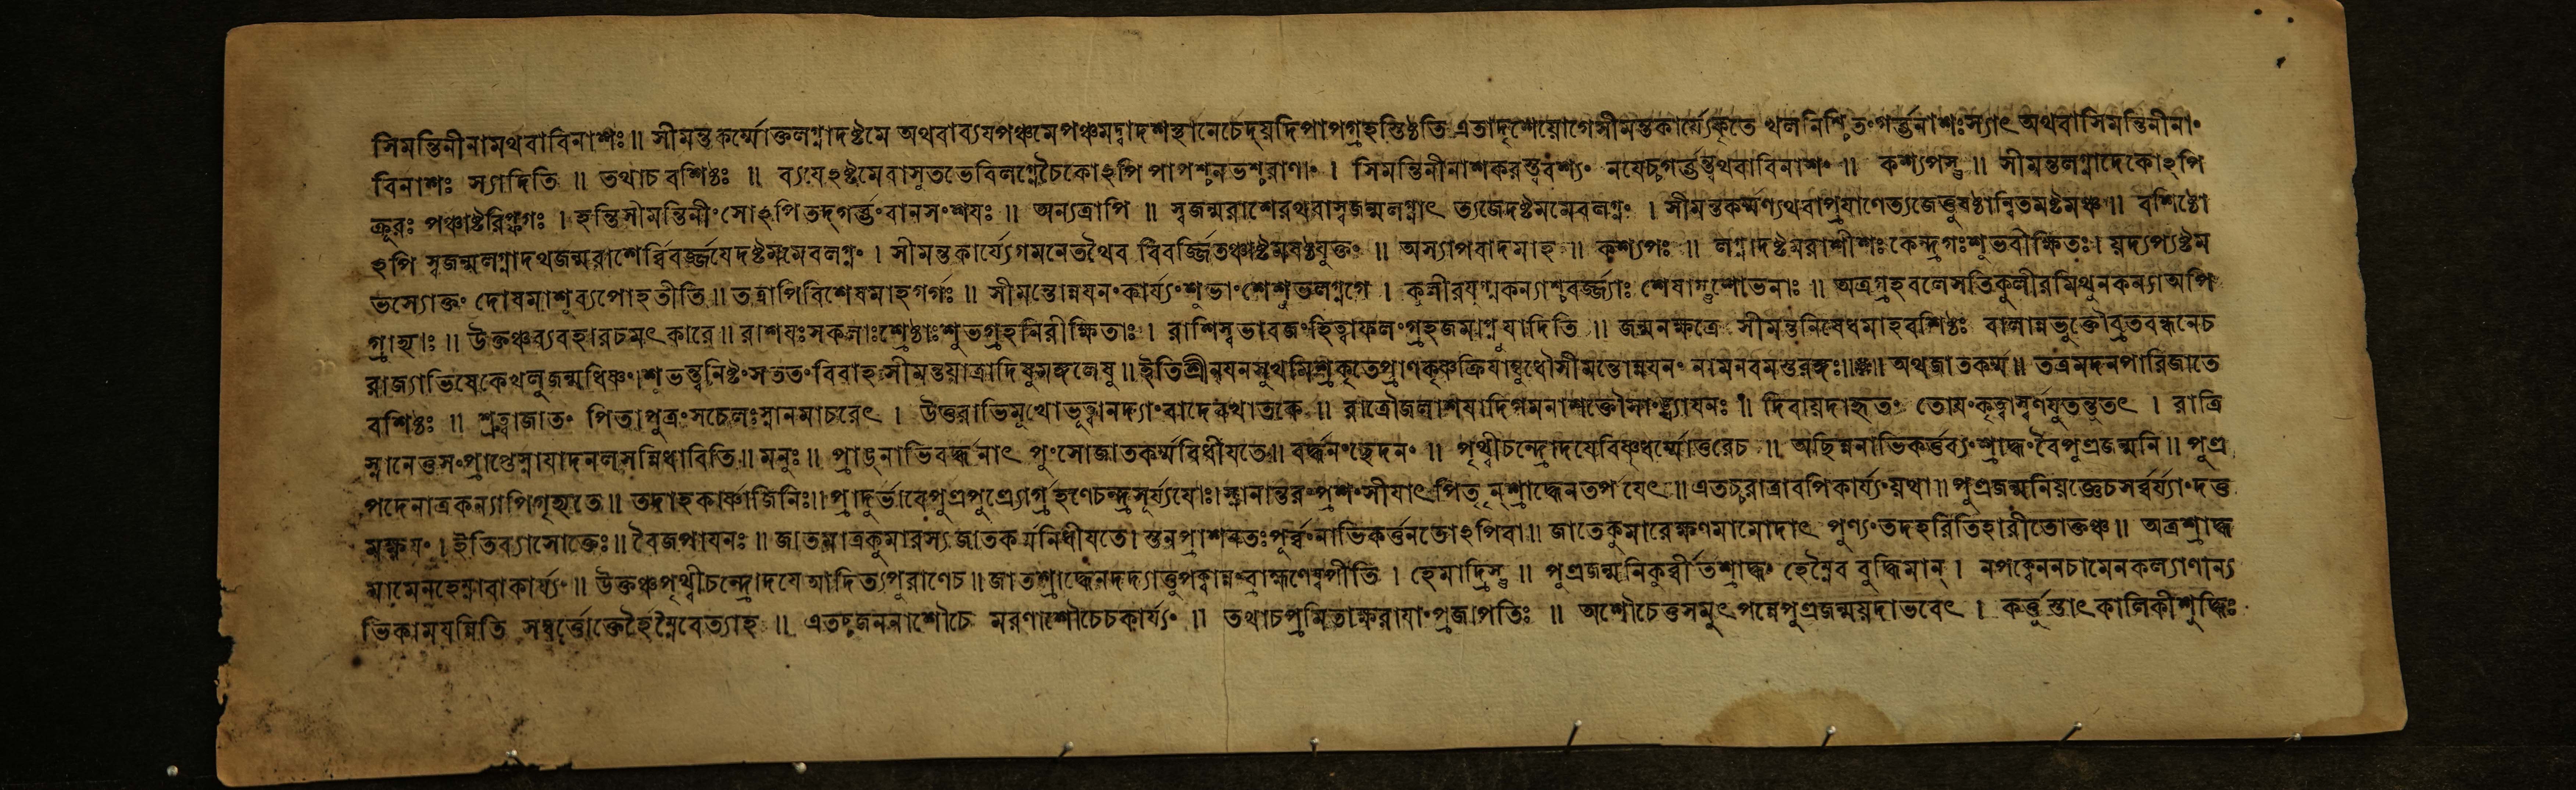 সিমন্তিনীনামথবাবিনাশঃ॥ সীমন্তকর্ম্মোক্তলগ্নাদষ্টমে অথবাব্যযপঞ্চমেপঞ্চমদ্বাদশস্থানেচেদ্যদিপাপগ্রহস্তিষ্ঠতি এতাদৃশেযোগেসীমন্তকার্য্যেকৃতে খলনিশ্চিতংগর্ত্তনাশঃস্যাৎ অথবাসিমন্তিনীনাং
বিনাশঃ স্যাদিতি ॥ তথাচ বশিষ্ঠঃ ॥ ব্যযেঽষ্টমেবাসুতভেবিলগ্নেচৈকোঽপি পাপশ্চনভশ্চরাণাং । সিমন্তিনীনাশকরস্ত্ববশ্যং নযেচ্চগর্ত্তন্ত্বথবাবিনাশং ॥ কশ্যপস্তু ॥ সীমন্তলগ্নাদেকোঽপি
ক্রূরঃ পঞ্চাষ্টরিপ্ফগঃ । হন্তিসীমন্তিনীং সোঽপিতদ্গর্ত্তংবানসংশযঃ ॥ অন্যত্রাপি ॥ স্বজন্মরাশেরথবাস্বজন্মলগ্নাৎ ত্যজেদষ্টমমেবলগ্নং । সীমন্তকর্ম্মণ্যথবাপ্রযাণেত্যজেত্তুষষ্ঠান্বিতমষ্টমঞ্চ ॥ বশিষ্ঠো
ঽপি স্বজন্মলগ্নাদথজন্মরাশের্ব্বিবর্জ্জযেদষ্টমমেবলগ্নং । সীমন্তকার্য্যেগমনেতথৈব বিবর্জ্জিতঞ্চাষ্টমষষ্ঠযুক্তং ॥ অস্যাপবাদমাহ ॥ কশ্যপঃ ॥ লগ্নাদষ্টমরাশীশঃকেন্দ্রগঃশুভবীক্ষিতঃ। যদ্যপ্যষ্টম
ভস্যোক্তং দোষমাশুব্যপোহতীতি॥ তত্রাপিবিশেষমাহগর্গঃ ॥ সীমন্তোন্নযনংকার্য্যংশুভাংশেশুভলগ্নগে । কুলীরযুগ্মকন্যাশ্চবর্জ্জ্যাঃ শেষাস্তুশোভনাঃ ॥ অত্রগ্রহবলেসতিকুলীরমিথুনকন্যাঅপি
গ্রাহ্যাঃ ॥ উক্তঞ্চব্যবহারচমৎকারে॥ রাশযঃসকলাঃশ্রেষ্ঠাঃশুভগ্রহনিরীক্ষিতাঃ। রাশিস্বভাবজংহিত্বাফলংগ্রহজমাপ্নুযাদিতি ॥ জন্মনক্ষত্রে সীমন্তনিষেধমাহবশিষ্ঠঃ বালান্নভুক্তৌব্রতবন্ধনেচ
রাজ্যাভিষেকেখলুজন্মধিষ্ণং।শুভন্ত্বনিষ্টংসততংবিবাহসীমন্তযাত্রাদিষুমঙ্গলেষু॥ ইতিশ্রীনযনসুখমিশ্রকৃতেপ্রাণকৃষ্ণক্রিযাম্বুধৌসীমন্তোন্নযনং নামনবমস্তরঙ্গঃ॥॥ অথজাতকর্ম্ম॥ তত্রমদনপারিজাতে
বশিষ্ঠঃ ॥ শ্রুত্বাজাতং পিতাপুত্রংসচেলঃস্নানমাচরেৎ । উত্তরাভিমুখোভূত্বানদ্যাংবাদেবখাতকে ॥ রাত্রৌজলাশযাদিগমনাশক্তৌসাংখ্যাযনঃ ॥ দিবাযদাহৃতং তোযংকৃত্বাস্বর্ণযুতন্তুতৎ । রাত্রি
স্নানেত্তুসংপ্রাপ্তেস্নাযাদনলসন্নিধাবিতি॥ মনুঃ ॥ প্রাঙ্নাভিবর্দ্ধনাৎ পুংসোজাতকর্ম্মবিধীযতে॥ বর্দ্ধনংছেদনং ॥ পৃথ্বীচন্দ্রোদযেবিষ্ণুধর্ম্মোত্তরেচ ॥ অছিন্ননাভিকর্ত্তব্যংশ্রাদ্ধংবৈপুত্রজন্মনি॥ পুত্র
পদেনাত্রকন্যাপিগৃহ্যতে॥ তদাহকার্ষ্ণাজিনিঃ॥ প্রাদুর্ভাবেপুত্রপুত্র্যোর্গ্রহণেচন্দ্রসূর্য্যযোঃ। স্নানান্তরংপ্রশংসীযাৎপিতৄন্শ্রাদ্ধেনতর্পযেৎ॥ এতচ্চরাত্রাবপিকার্য্যংযথা॥ পুত্রজন্মনিযজ্ঞেচসর্ব্বর্য্যাংদত্ত
মক্ষযং।ইতিব্যাসোক্তেঃ॥ বৈজপাযনঃ ॥ জাতমাত্রকুমারস্য জাতকর্ম্মবিধীযতে। স্তনপ্রাশনতঃপূর্ব্বংনাভিকর্ত্তনতোঽপিবা॥ জাতেকুমারেক্ষণমামোদাৎ পুণ্যংতদহরিতিহারীতোক্তঞ্চ॥ অত্রশ্রাদ্ধ
মামেনহেম্নাবাকার্য্যং ॥ উক্তঞ্চপৃথ্বীচন্দ্রোদযে আদিত্যপুরাণেচ॥ জাতশ্রাদ্ধেনদদ্যাত্তুপক্বান্নংব্রাহ্মণেষ্বপীতি । হেমাদ্রিস্তু ॥ পুত্রজন্মনিকুর্ব্বীতশ্রাদ্ধং হেম্নৈব বুদ্ধিমান্ । নপক্বেননচামেনকল্যাণান্য
ভিকামযন্নিতি সম্বর্ত্তোক্তের্হেম্নৈবেত্যাহ ॥ এতচ্চজননাশৌচে মরণাশৌচেচকার্য্যং ॥ তথাচপ্রমিতাক্ষরাযাংপ্রজাপতিঃ ॥ অশৌচেত্তুসমুৎপন্নেপুত্রজন্মযদাভবেৎ । কর্ত্তুস্তাৎকালিকীশুদ্ধিঃ